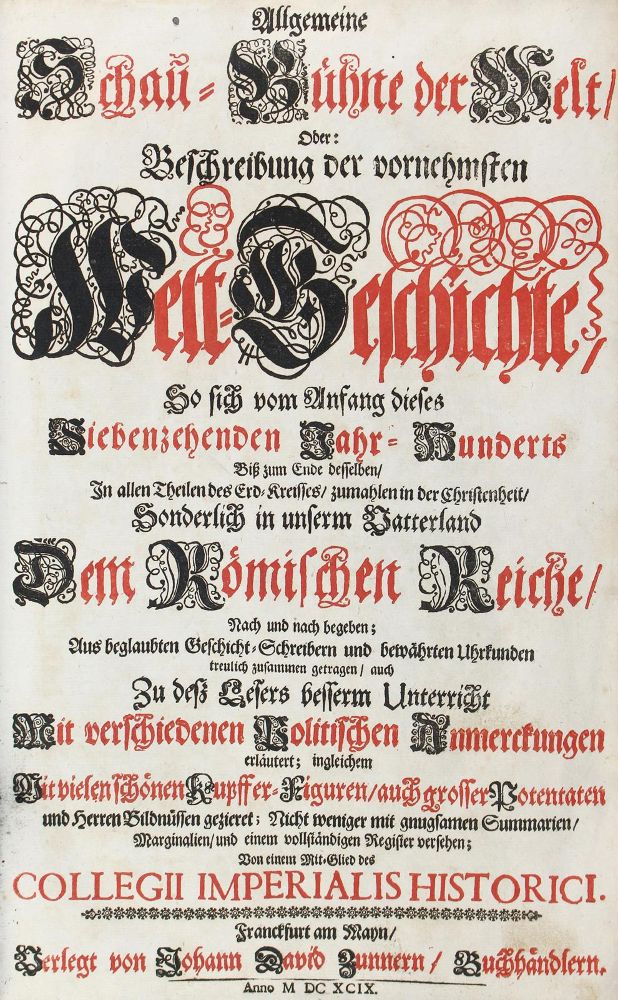 Allgemeine
Schau-Bühne der Welt/
Oder:
Beschreibung der vornehmsten
Welt-Geschichte/
So sich vom Anfang dieses
Siebenzehenden Jahr-Hunderts
Biß zum Ende desselben/
In allen Theilen des Erd-Kreisses/ zumahlen in der Christenheit/
Sonderlich in unserm Vatterland
Dem Römischen Reiche/
Nach und nach begeben;
Aus beglaubten Geschicht-Schreibern und bewährten Uhrkunden
treulich zusammen getragen/ auch
Zu deß Lesers besserm Unterricht
Mit verschiedenen Politischen Anmerckungen
erläutert; ingleichem
Mit vielen schönen Kupffer-Figuren/ auch grosser Potentaten
und Herren Bildnüssen gezieret; Nicht weniger mit gnugsamen Summarien/
Marginalien/ und einem vollständigen Register versehen;
Von einem Mit-Glied des
COLLEGII IMPERIALIS HISTORICI.
Franckfurt am Mayn/
Verlegt von Johann David Zunnern/ Buchhändlern.
Anno M DC XCIX.